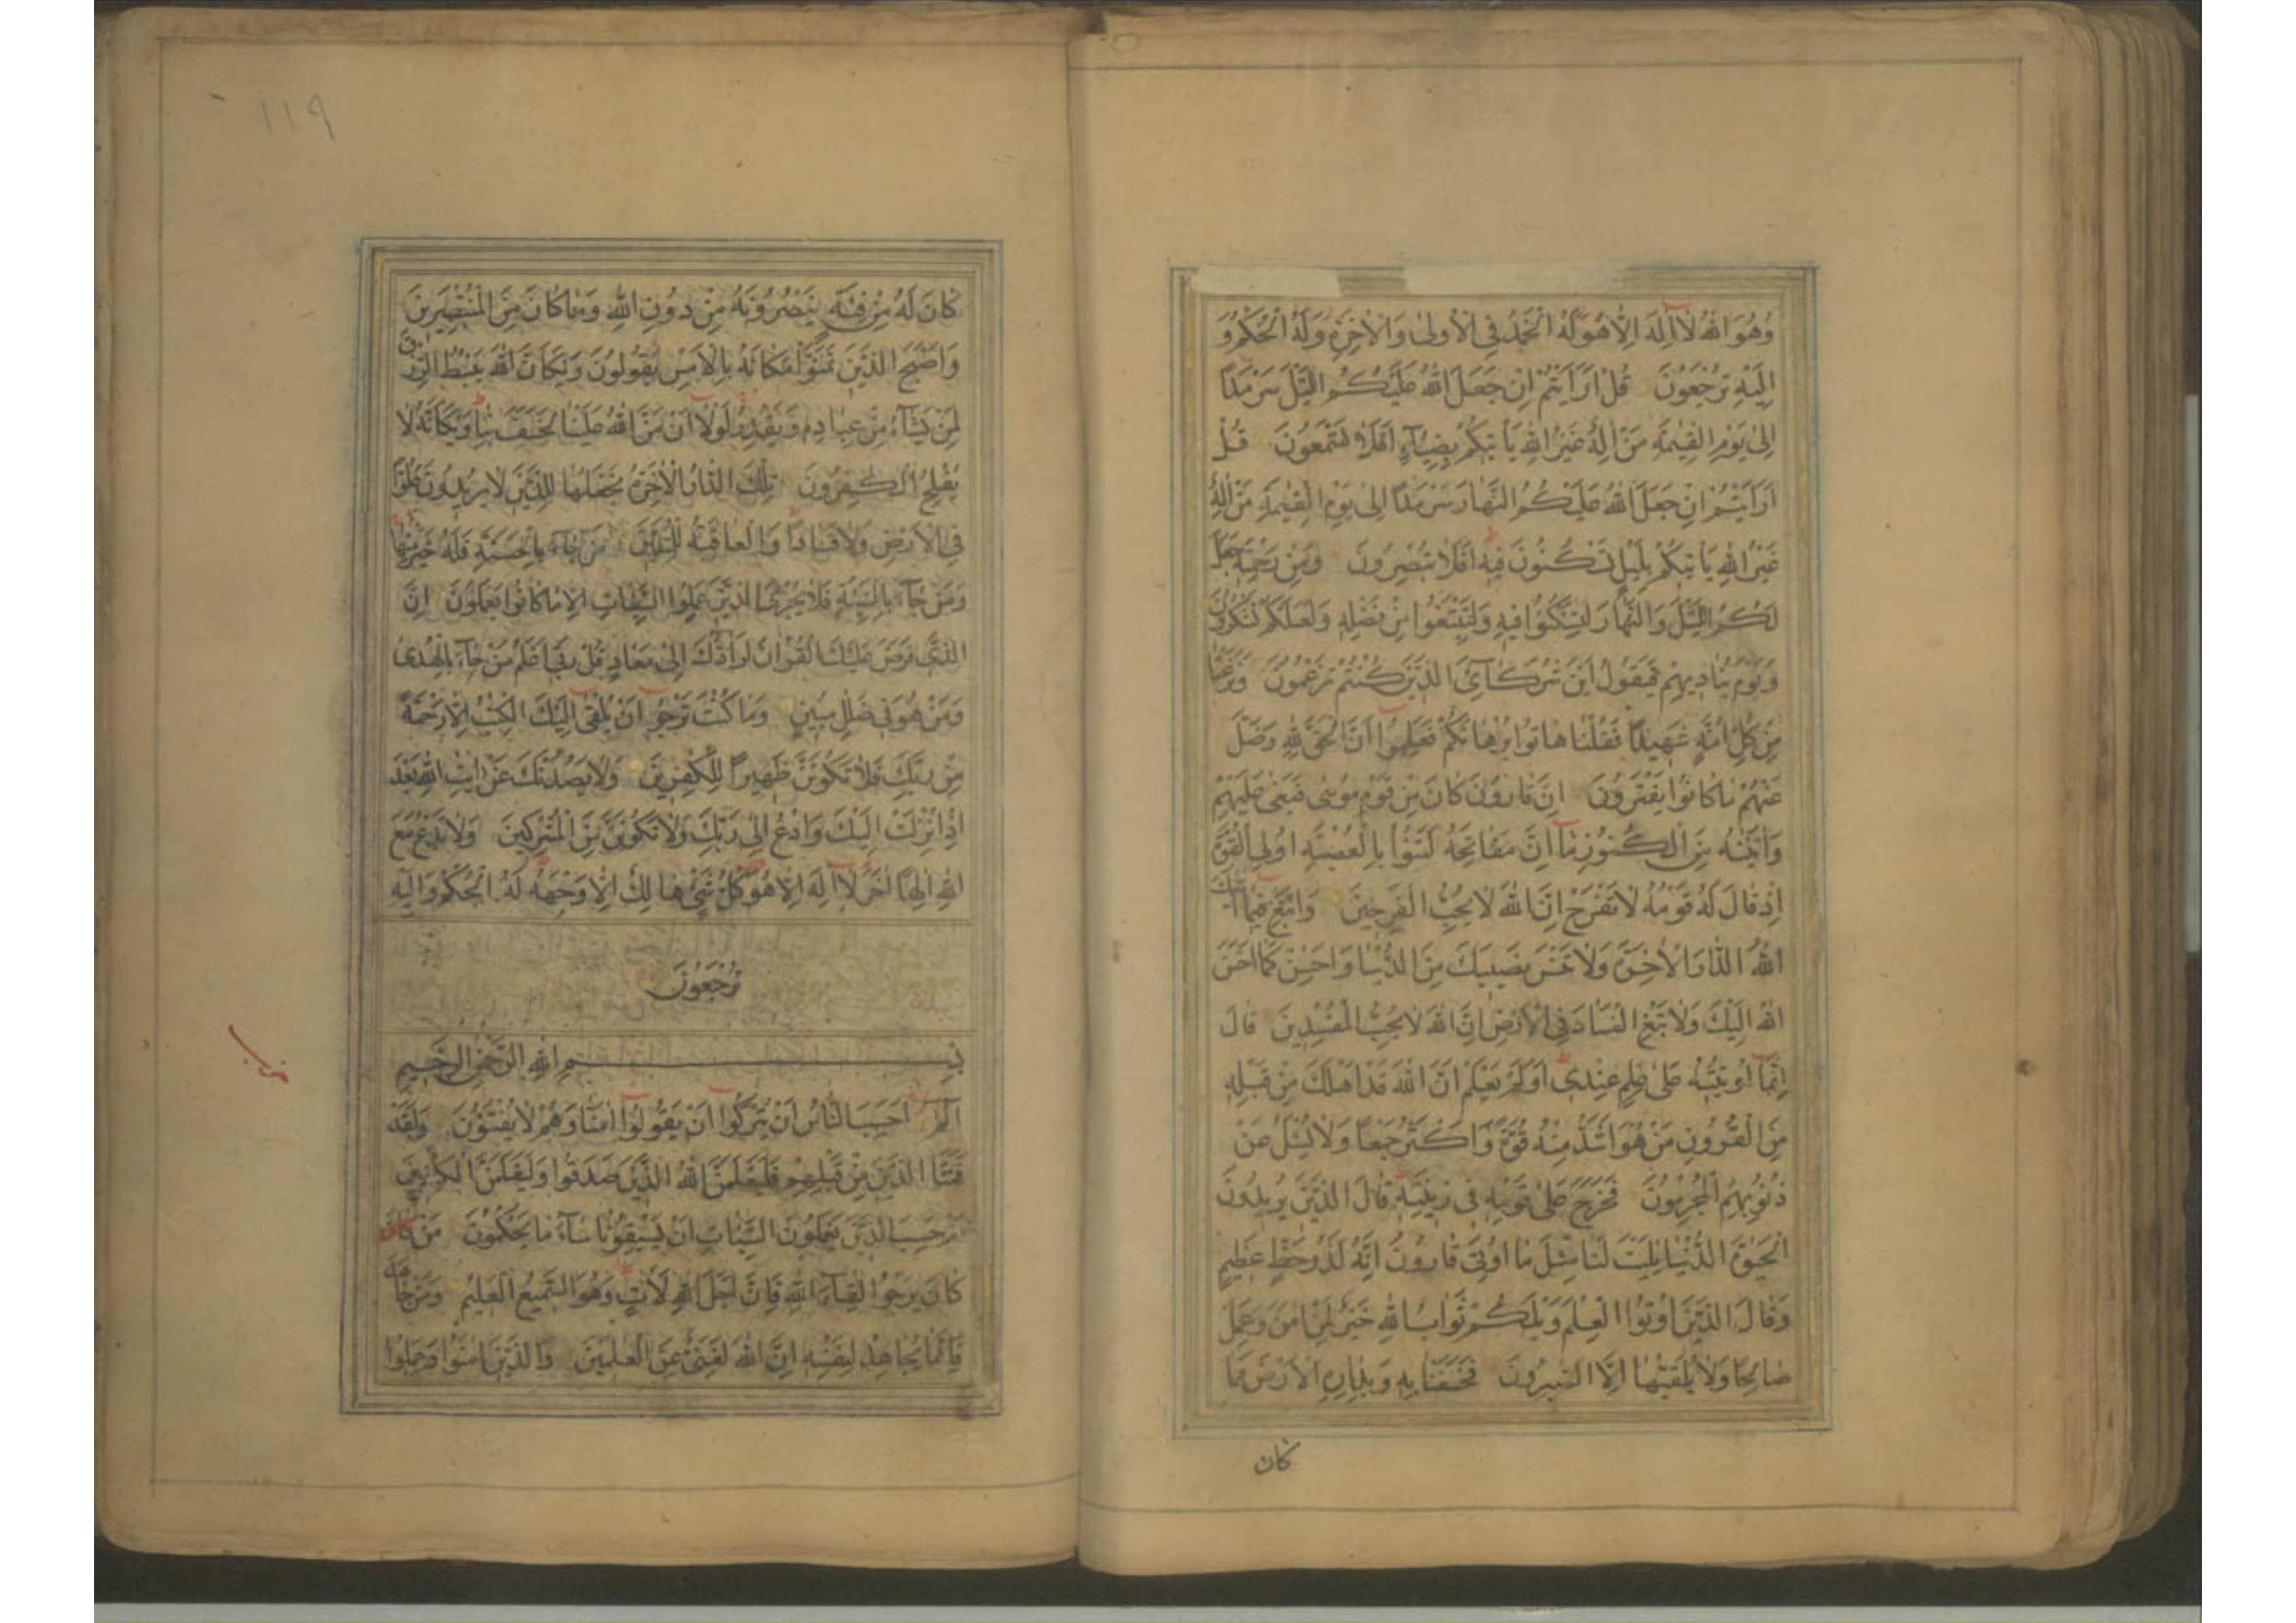 وَهُوَ اللهُ لَآ اِلَهَ اِلَّا هُوَ لَهُ الْحَمْدُ فِي الْاُولىٰ وَالْاٰخِرَةِ وَلَهُ الْحُكْمُ وَ
اِلَيْهِ تُرْجَعُونَ قُلْ اَرَاَيْتُمْ اِنْ جَعَلَ اللهُ عَلَيْكُمُ الَّيْلَ سَرْمَدًا
اِلىٰ يَوْمِ الْقِيٰمَةِ مَنْ اِلٰهٌ غَيْرُ اللهِ يَأْتِيكُمْ بِضِيَآءٍ اَفَلَا تَسْمَعُونَ قُلْ
اَرَاَيْتُمْ اِنْ جَعَلَ اللهُ عَلَيْكُمُ النَّهَارَ سَرْمَدًا اِلىٰ يَوْمِ الْقِيٰمَةِ مَنْ اِلٰهٌ
غَيْرُ اللهِ يَأْتِيكُمْ بِلَيْلٍ تَسْكُنُونَ فِيهِ اَفَلَا تُبْصِرُونَ وَمِنْ رَحْمَتِهِ جَعَلَ
لَكُمُ الَّيْلَ وَالنَّهَارَ لِتَسْكُنُوا فِيهِ وَلِتَبْتَغُوا مِنْ فَضْلِهِ وَلَعَلَّكُمْ تَشْكُرُونَ
وَيَوْمَ يُنَادِيهِمْ فَيَقُولُ اَيْنَ شُرَكَآئِيَ الَّذِينَ كُنْتُمْ تَزْعُمُونَ وَنَزَعْنَا
مِنْ كُلِّ اُمَّةٍ شَهِيدًا فَقُلْنَا هَاتُوا بُرْهَانَكُمْ فَعَلِمُوٓا اَنَّ الْحَقَّ لِلّٰهِ وَضَلَّ
عَنْهُمْ مَا كَانُوا يَفْتَرُونَ اِنَّ قَارُونَ كَانَ مِنْ قَوْمِ مُوسٰى فَبَغٰى عَلَيْهِمْ
وَاٰتَيْنٰهُ مِنَ الْكُنُوزِ مَآ اِنَّ مَفَاتِحَهُ لَتَنُوأُ بِالْعُصْبَةِ اُولِي الْقُوَّةِ
اِذْ قَالَ لَهُ قَوْمُهُ لَا تَفْرَحْ اِنَّ اللهَ لَا يُحِبُّ الْفَرِحِينَ وَابْتَغِ فِيمَآ اٰتٰىكَ
اللهُ الدَّارَ الْاٰخِرَةَ وَلَا تَنْسَ نَصِيبَكَ مِنَ الدُّنْيَا وَاَحْسِنْ كَمَا اَحْسَنَ
اللهُ اِلَيْكَ وَلَا تَبْغِ الْفَسَادَ فِي الْاَرْضِ اِنَّ اللهَ لَا يُحِبُّ الْمُفْسِدِينَ قَالَ
اِنَّمَآ اُوتِيتُهُ عَلىٰ عِلْمٍ عِنْدِي اَوَلَمْ يَعْلَمْ اَنَّ اللهَ قَدْ اَهْلَكَ مِنْ قَبْلِهِ
مِنَ الْقُرُونِ مَنْ هُوَ اَشَدُّ مِنْهُ قُوَّةً وَاَكْثَرُ جَمْعًا وَلَا يُسْئَلُ عَنْ
ذُنُوبِهِمُ الْمُجْرِمُونَ فَخَرَجَ عَلىٰ قَوْمِهِ فِي زِينَتِهِ قَالَ الَّذِينَ يُرِيدُونَ
الْحَيٰوةَ الدُّنْيَا يٰلَيْتَ لَنَا مِثْلَ مَا اُوتِيَ قَارُونُ اِنَّهُ لَذُو حَظٍّ عَظِيمٍ
وَقَالَ الَّذِينَ اُوتُوا الْعِلْمَ وَيْلَكُمْ ثَوَابُ اللهِ خَيْرٌ لِمَنْ اٰمَنَ وَعَمِلَ
صَالِحًا وَلَا يُلَقّٰيهَا اِلَّا الصّٰبِرُونَ فَخَسَفْنَا بِهِ وَبِدَارِهِ الْاَرْضَ فَمَا
كان
١١٩
كَانَ لَهُ مِنْ فِئَةٍ يَنْصُرُونَهُ مِنْ دُونِ اللهِ وَمَا كَانَ مِنَ الْمُنْتَصِرِينَ
وَاَصْبَحَ الَّذِينَ تَمَنَّوْا مَكَانَهُ بِالْاَمْسِ يَقُولُونَ وَيْكَاَنَّ اللهَ يَبْسُطُ الرِّزْقَ
لِمَنْ يَشَآءُ مِنْ عِبَادِهِ وَيَقْدِرُ لَوْلَآ اَنْ مَنَّ اللهُ عَلَيْنَا لَخَسَفَ بِنَا وَيْكَاَنَّهُ لَا
يُفْلِحُ الْكٰفِرُونَ تِلْكَ الدَّارُ الْاٰخِرَةُ نَجْعَلُهَا لِلَّذِينَ لَا يُرِيدُونَ عُلُوًّا
فِي الْاَرْضِ وَلَا فَسَادًا وَالْعَاقِبَةُ لِلْمُتَّقِينَ مَنْ جَآءَ بِالْحَسَنَةِ فَلَهُ خَيْرٌ مِنْهَا
وَمَنْ جَآءَ بِالسَّيِّئَةِ فَلَا يُجْزَى الَّذِينَ عَمِلُوا السَّيِّاٰتِ اِلَّا مَا كَانُوا يَعْمَلُونَ اِنَّ
الَّذِي فَرَضَ عَلَيْكَ الْقُرْاٰنَ لَرَآدُّكَ اِلىٰ مَعَادٍ قُلْ رَبِّي اَعْلَمُ مَنْ جَآءَ بِالْهُدىٰ
وَمَنْ هُوَ فِي ضَلٰلٍ مُبِينٍ وَمَا كُنْتَ تَرْجُوٓا اَنْ يُلْقٰىٓ اِلَيْكَ الْكِتٰبُ اِلَّا رَحْمَةً
مِنْ رَبِّكَ فَلَا تَكُونَنَّ ظَهِيرًا لِلْكٰفِرِينَ وَلَا يَصُدُّنَّكَ عَنْ اٰيٰتِ اللهِ بَعْدَ
اِذْ اُنْزِلَتْ اِلَيْكَ وَادْعُ اِلىٰ رَبِّكَ وَلَا تَكُونَنَّ مِنَ الْمُشْرِكِينَ وَلَا تَدْعُ مَعَ
اللهِ اِلٰهًا اٰخَرَ لَآ اِلَهَ اِلَّا هُوَ كُلُّ شَيْءٍ هَالِكٌ اِلَّا وَجْهَهُ لَهُ الْحُكْمُ وَاِلَيْهِ
تُرْجَعُونَ
بِسْمِ اللهِ الرَّحْمٰنِ الرَّحِيمِ
الٓمٓ اَحَسِبَ النَّاسُ اَنْ يُتْرَكُوٓا اَنْ يَقُولُوٓا اٰمَنَّا وَهُمْ لَا يُفْتَنُونَ وَلَقَدْ
فَتَنَّا الَّذِينَ مِنْ قَبْلِهِمْ فَلَيَعْلَمَنَّ اللهُ الَّذِينَ صَدَقُوا وَلَيَعْلَمَنَّ الْكٰذِبِينَ
اَمْ حَسِبَ الَّذِينَ يَعْمَلُونَ السَّيِّاٰتِ اَنْ يَسْبِقُونَا سَآءَ مَا يَحْكُمُونَ مَنْ كَانَ
كَانَ يَرْجُوا لِقَآءَ اللهِ فَاِنَّ اَجَلَ اللهِ لَاٰتٍ وَهُوَ السَّمِيعُ الْعَلِيمُ وَمَنْ جَاهَدَ
فَاِنَّمَا يُجَاهِدُ لِنَفْسِهِ اِنَّ اللهَ لَغَنِيٌّ عَنِ الْعٰلَمِينَ وَالَّذِينَ اٰمَنُوا وَعَمِلُوا
حزب